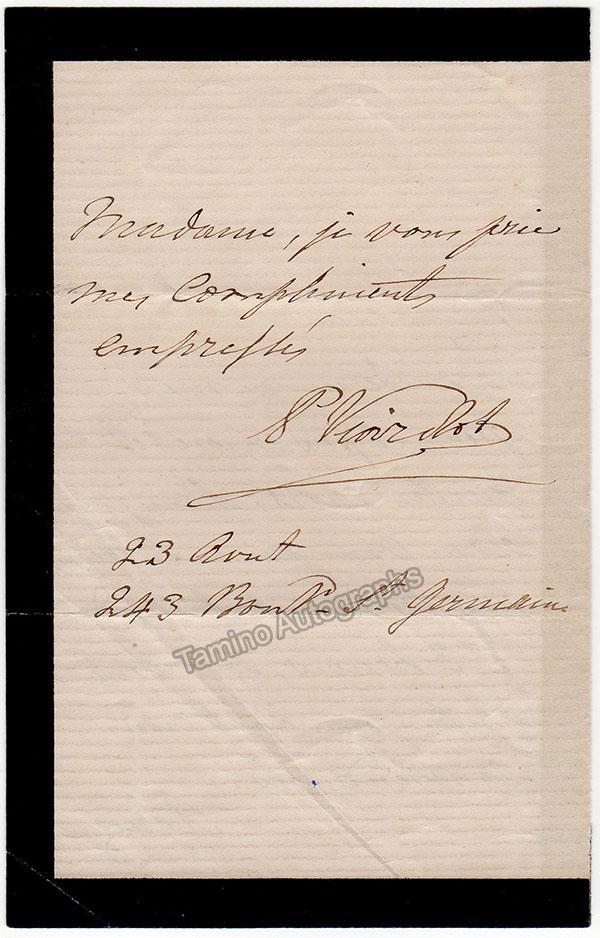 Madame, je vous prie
mes compliments
empressés
P Viardot
23 Aout
243 Boul.d St Germain.
Tamino Autographs